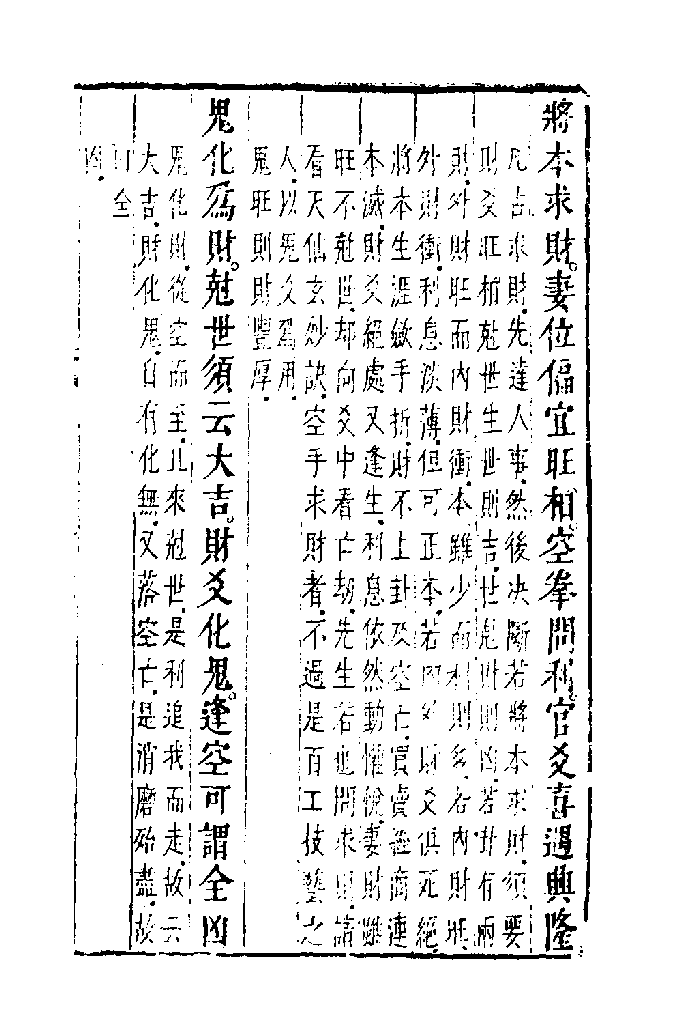 將本求財。妻位偏宜旺相。空拳問利。官爻喜遇興隆
凡占求財。先達人事。然後决斷。若將本求財。須要
財爻旺相。尅世生世則吉。世尅財則凶。若卦有兩
財。外財旺而內財衝。本雖少而利則多。若內財旺。
外財衝。利息淡薄。但可正本。若內外財爻俱死絕。
將本生涯斂手折。財不上卦及空亡。買賣經商連
本滅。財爻絕處又逢生。利息依然動懽悅。妻財雖
旺不尅世。却向爻中看亡刼。先生若也問求財。請
看天仙玄妙訣。空手求財者。不過是百工技藝之
人。以鬼爻爲用。
鬼旺則財豐厚。
鬼化爲財。尅世須云大吉。財爻化鬼。逢空可謂全凶
鬼化財。從空而至。凡來尅世。是利追我而走。故云
大吉。財化鬼。自有化無。又落空亡。是消磨殆盡。故
全
凶。